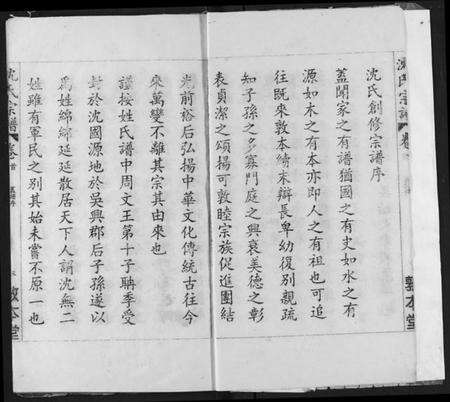 沈氏宗譜
敦本堂
沈氏創修宗譜序
蓋聞家之有譜猶國之有史如水之有
源如木之有本亦即人之有祖也可追
往既來敦本續末辨長卑幼復別親疏
知子孫之多寡門庭之興衰美德之彰
表貞潔之頌揚可敦睦宗族促進團結
光前裕后弘揚中華文化傳統古往今
來萬變不離其宗其由來也
謹按姓氏譜中周文王第十子聃季受
封於沈國源地於吳興郡后子孫遂以
為姓綿綿延延散居天下人謂沈無二
姓雖有軍民之別其始未嘗不原一也
沈氏宗譜
卷首
敦本堂